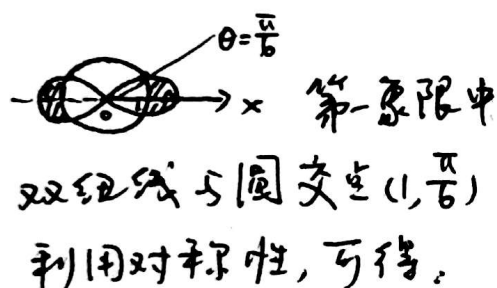 θ=π/6
x
o
第一象限中
双纽线与圆交点(1,π/6)
利用对称性,可得: